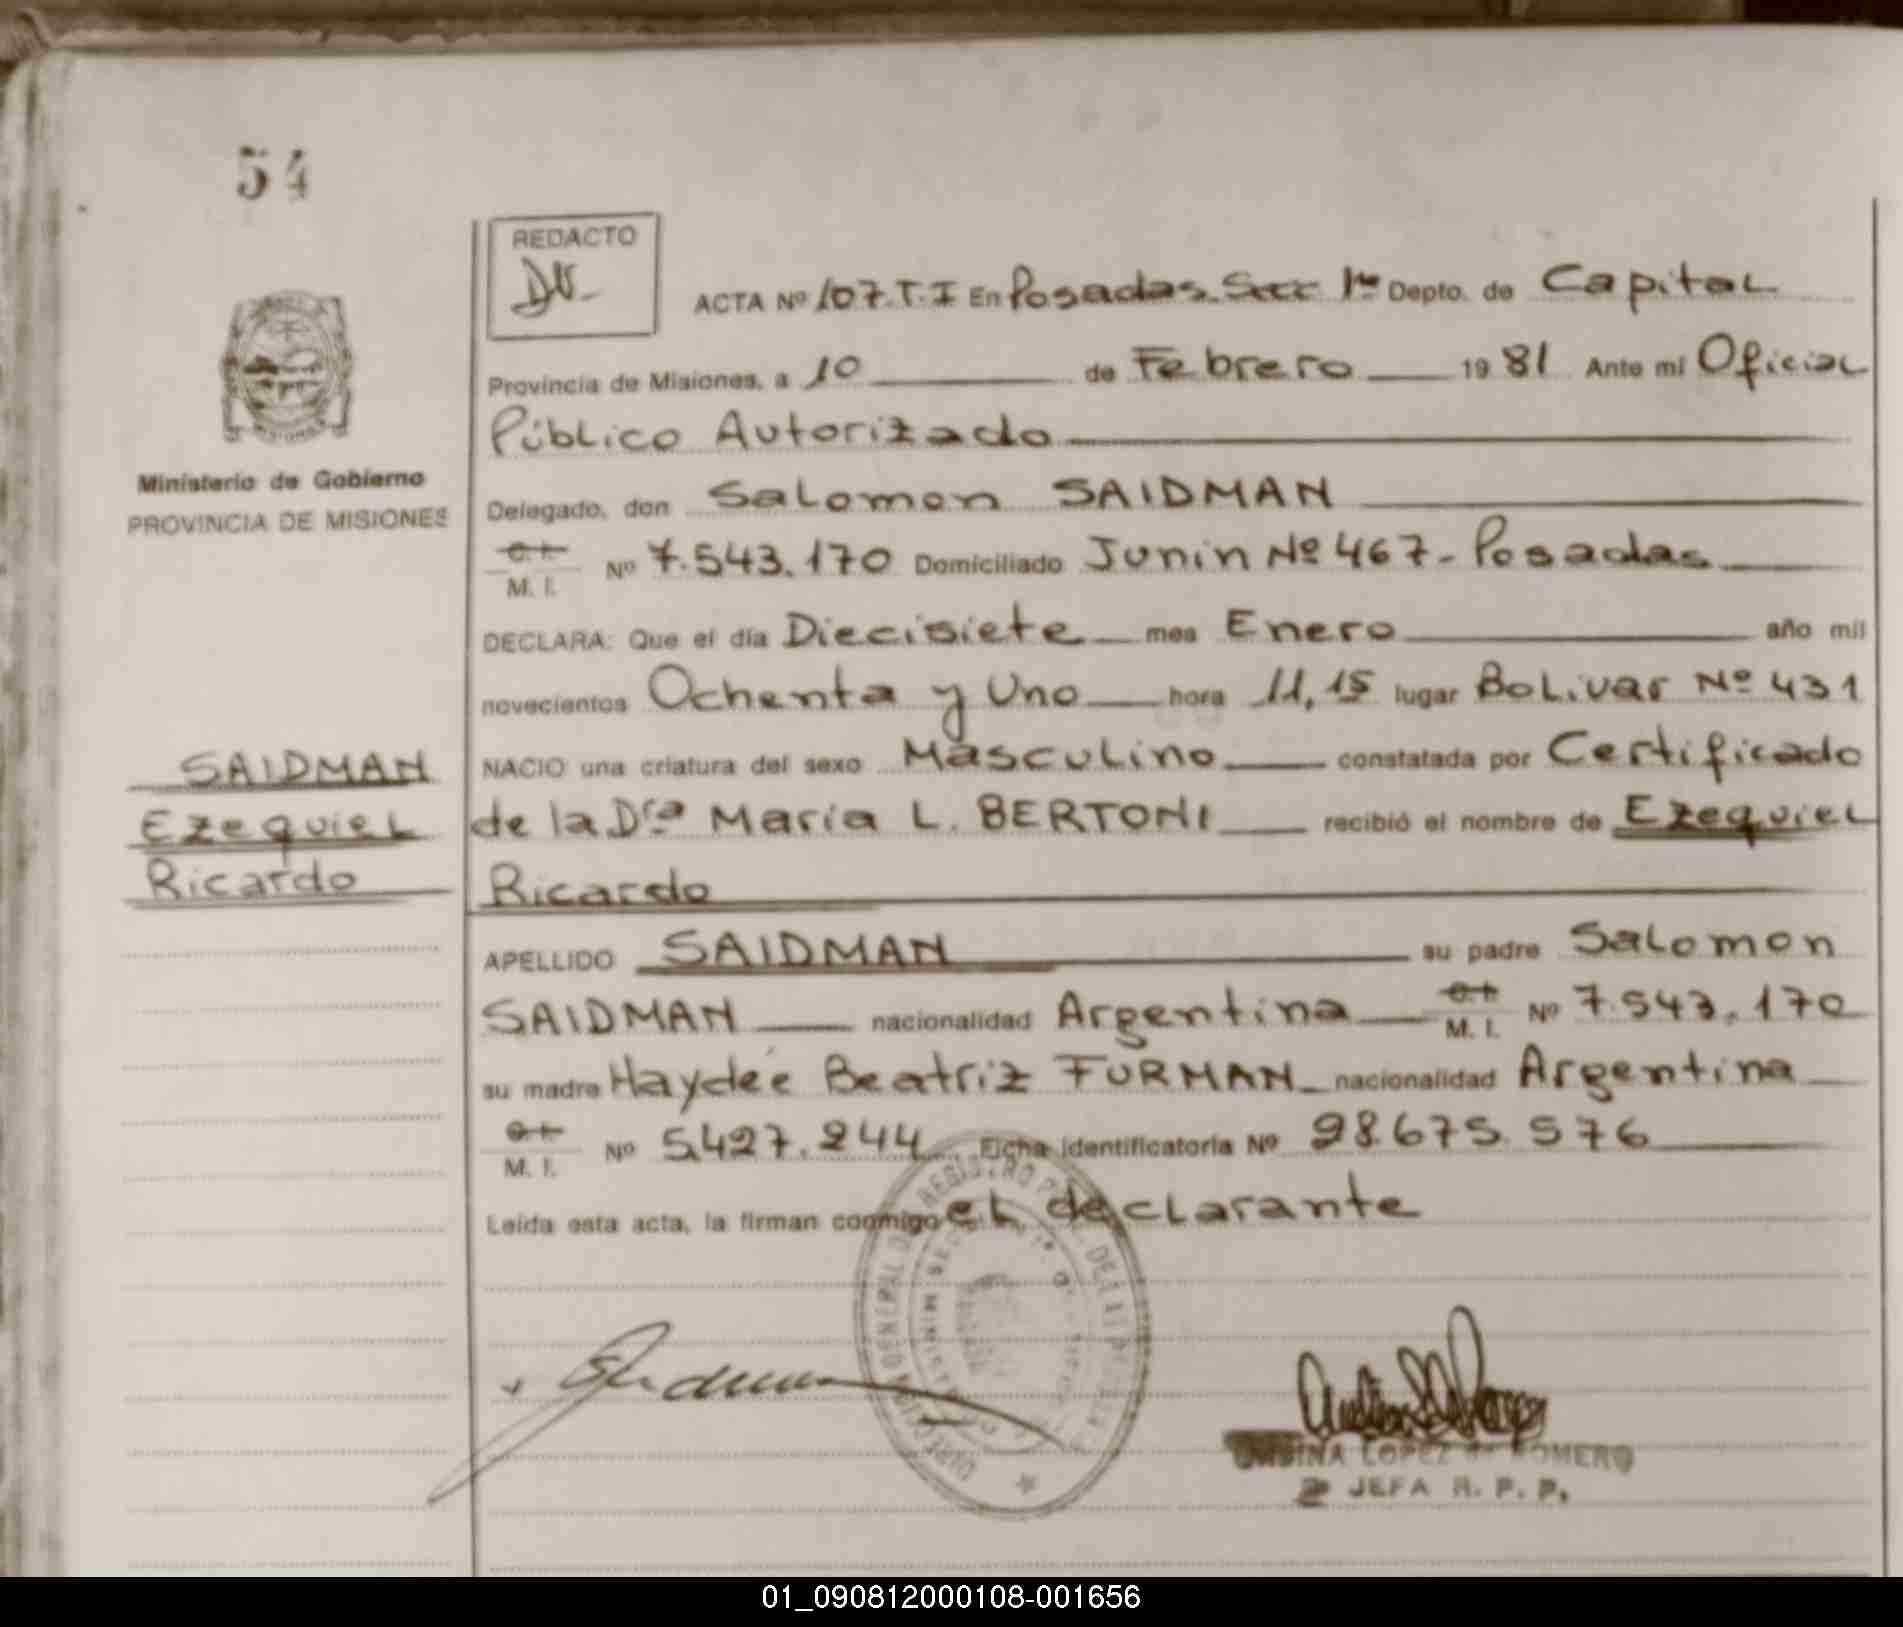 54
REDACTO
ACTA Nº 107.T.I En Posadas. Secc 1ra Depto. de Capital
Provincia de Misiones, a 10 de Febrero 19 81 Ante mí Oficial
Público Autorizado
Ministerio de Gobierno
PROVINCIA DE MISIONES
Delegado, don Salomon SAIDMAN
C.I. M. I. Nº 7.543.170 Domiciliado Junin Nº 467- Posadas
DECLARA: Que el día Diecisiete mes Enero año mil
novecientos Ochenta y Uno hora 11,15 lugar Bolivar Nº 431
NACIO una criatura del sexo Masculino constatada por Certificado
de la Dra Maria L. BERTONI recibió el nombre de Ezequiel
Ricardo
SAIDMAN
Ezequiel
Ricardo
APELLIDO SAIDMAN su padre Salomon
SAIDMAN nacionalidad Argentina C.I. M. I. Nº 7.543.170
su madre Haydée Beatriz FURMAN nacionalidad Argentina
C.I. M. I. Nº 5.427.244 Ficha identificatoria Nº 28.675.576
Leída esta acta, la firman conmigo el declarante
LOPEZ de ROMERO
JEFA R. P. P.
01_090812000108-001656